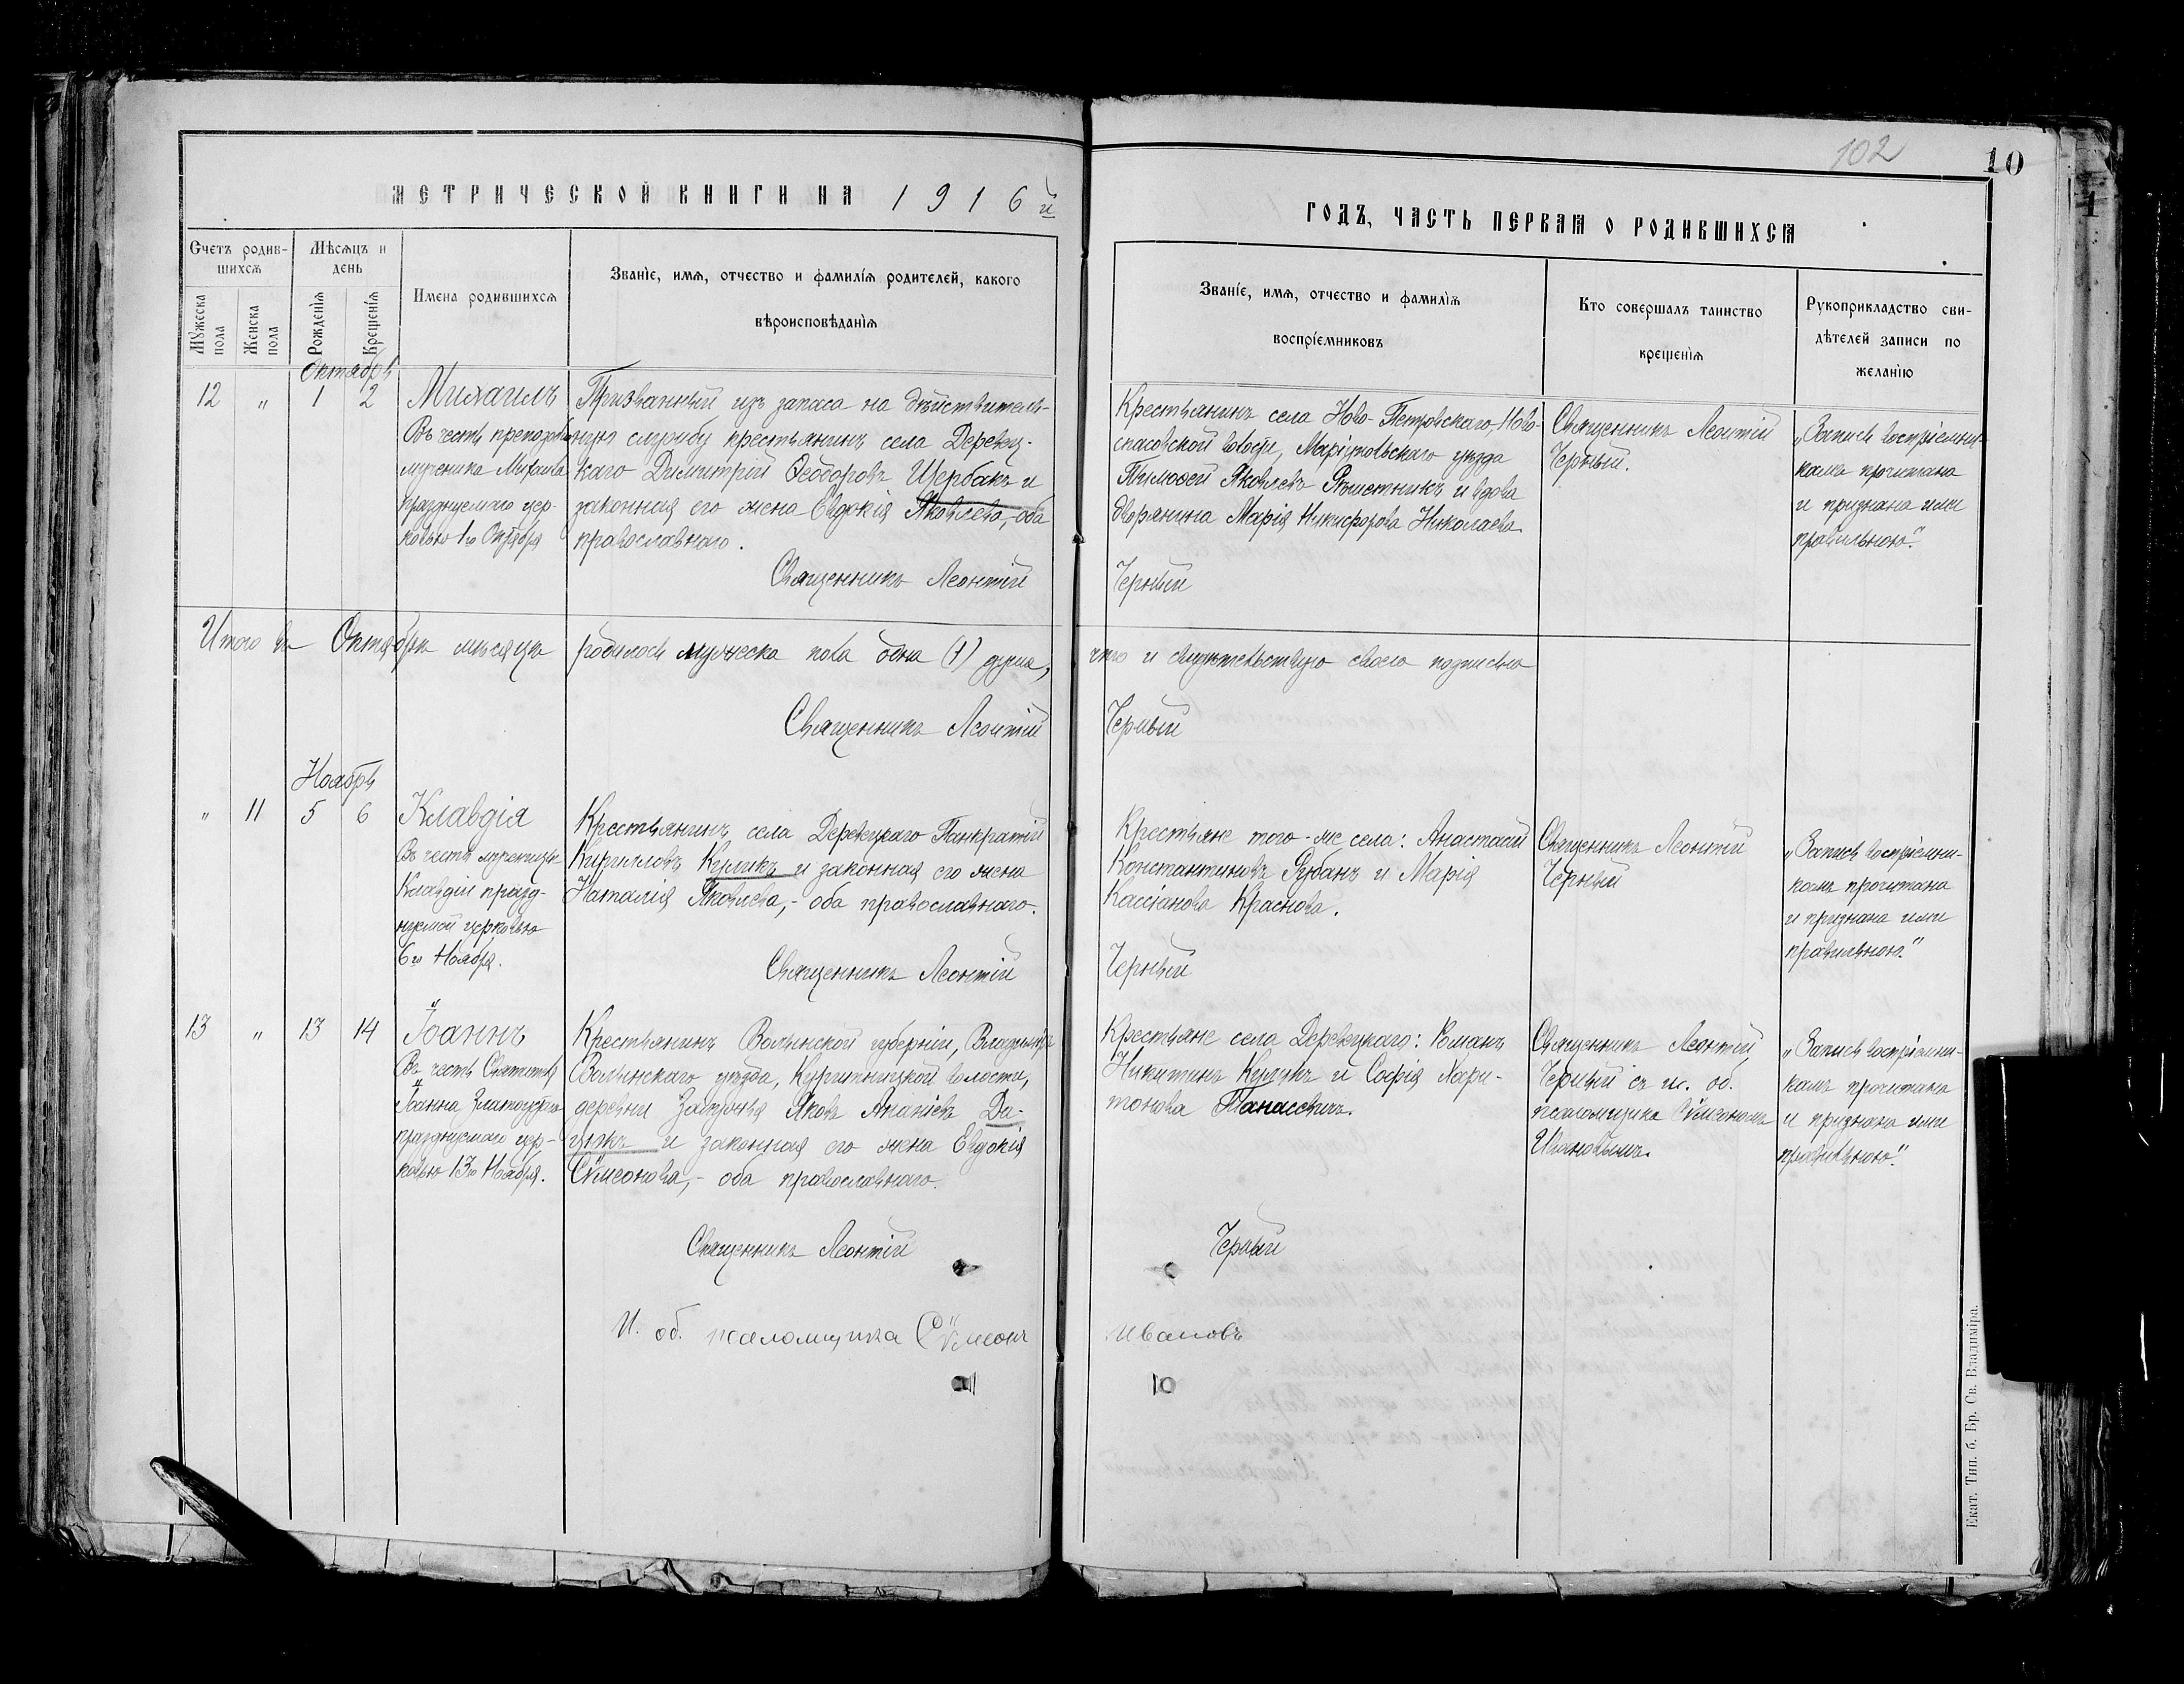 102
10
МЕТРИЧЕСКОЙ КНИГИ НА 1916 й
ГОДЪ, ЧАСТЬ ПЕРВАЯ О РОДИВШИХСЯ
Счетъ родив-
шихся
Мѣсяцъ и
день
Имена родившихся
Званіе, имя, отчество и фамилія родителей, какого
вѣроисповѣданія
Мужеска
пола
Женска
пола
Рожденія
Крещенія
Званіе, имя, отчество и фамилія
воспріемниковъ
Кто совершалъ таинство
крещенія
Рукоприкладство сви-
дѣтелей записи по
желанію
Октябрь
12 " 1 2
Михаилъ
Въ честь
мученика Михаила
празднуемаго цер-
ковью 1го Октября
Призванный изъ запаса на дѣйствитель-
ную службу крестьянинъ села Деревец-
каго Димитрій Ѳеодоровъ Щербакъ и
законная его жена Евдокія Яковлева,- оба
православнаго.
Священникъ Леонтій
Черный
Крестьянинъ села Ново-Петровскаго, Ново-
спасовской волости, Маріупольскаго уѣзда
Тимоѳей Яковлевъ Рѣшетникъ и вдова
дворянина Марія Никифорова Николаева
Священникъ Леонтій
Черный.
„Запись воспріемни-
камъ прочитана
и признана ими
правильною."
Итого въ Октябрѣ мѣсяцѣ родилось мужеска пола одна (1) душа, что и свидѣтельствую своею подписью
Священникъ Леонтій
Черный
Ноябрь
" 11 5 6
Клавдія
Въ честь мученицы
Клавдіи празд-
нуемой церковью
6го Ноября.
Крестьянинъ села Деревецкаго Панкратій
Кирилловъ Куликъ и законная его жена
Наталія Яковлева,- оба православнаго.
Священникъ Леонтій
Черный
Крестьяне того-же села: Анастасій
Константиновъ Рубанъ и Марія
Кассіанова Краснова.
Священникъ Леонтій
Черный
„Запись воспріемни-
камъ прочитана
и признана ими
правильною."
13 " 13 14
Іоаннъ
Въ честь Святителя
Іоанна Златоуста
празднуемаго цер-
ковью 13го Ноября.
Крестьянинъ Волынской губерніи, Владиміръ
Волынскаго уѣзда, волости,
деревни Яковъ Ананіевъ Да-
цюкъ и законная его жена Евдокія
Сѵмеонова,- оба православнаго.
Крестьяне села Деревецкаго: Романъ
Никитинъ Куликъ и Софія Хари-
тонова Панасевичъ.
Священникъ Леонтій
Черный съ и. об.
псаломщика Сѵмеономъ
Ивановымъ.
„Запись воспріемни-
камъ прочитана
и признана ими
правильною."
Священникъ Леонтій
Черный
И. об. псаломщика Сѵмеонъ
Ивановъ
Екат. Тип. б. Бр. Св. Владиміра.